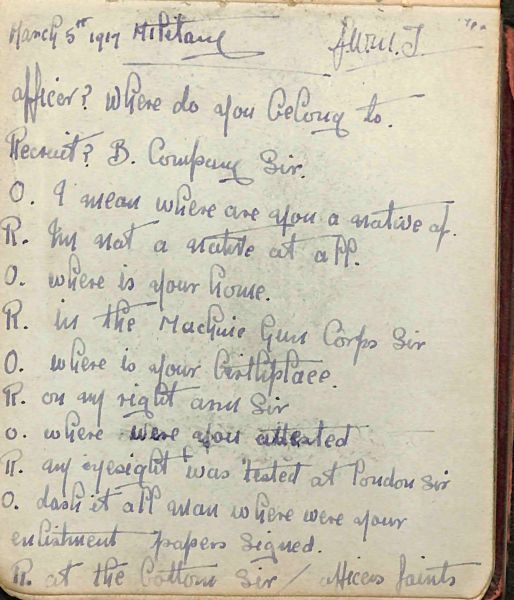 March 5th 1917 Military
officer? Where do you belong to.
Recruit? B. Company Sir.
O. I mean where are you a native of.
R. Im not a native at all.
O. where is your home.
R. in the Machine Gun Corps Sir
O. where is your birthplace.
R. on my right arm Sir
O. where were you attested
R. my eyesight was tested at London Sir
O. dash it all man where were your
enlistment papers signed.
R. at the bottom Sir / officers faints